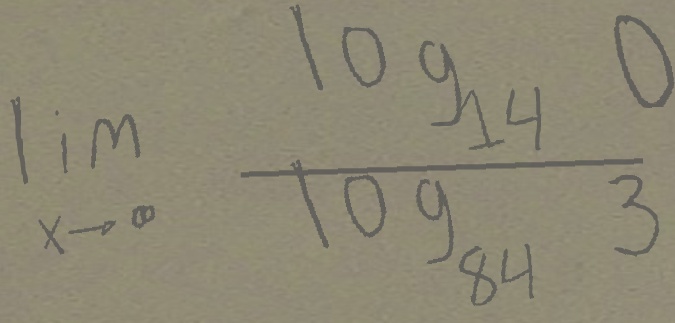 lim x→∞ log₁₄ 0 / log₈₄ 3